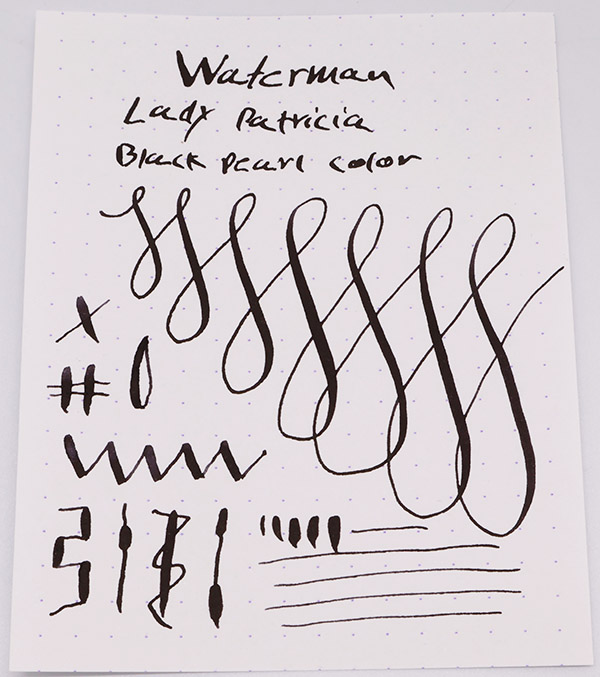 Waterman
Lady Patricia
Black Pearl color